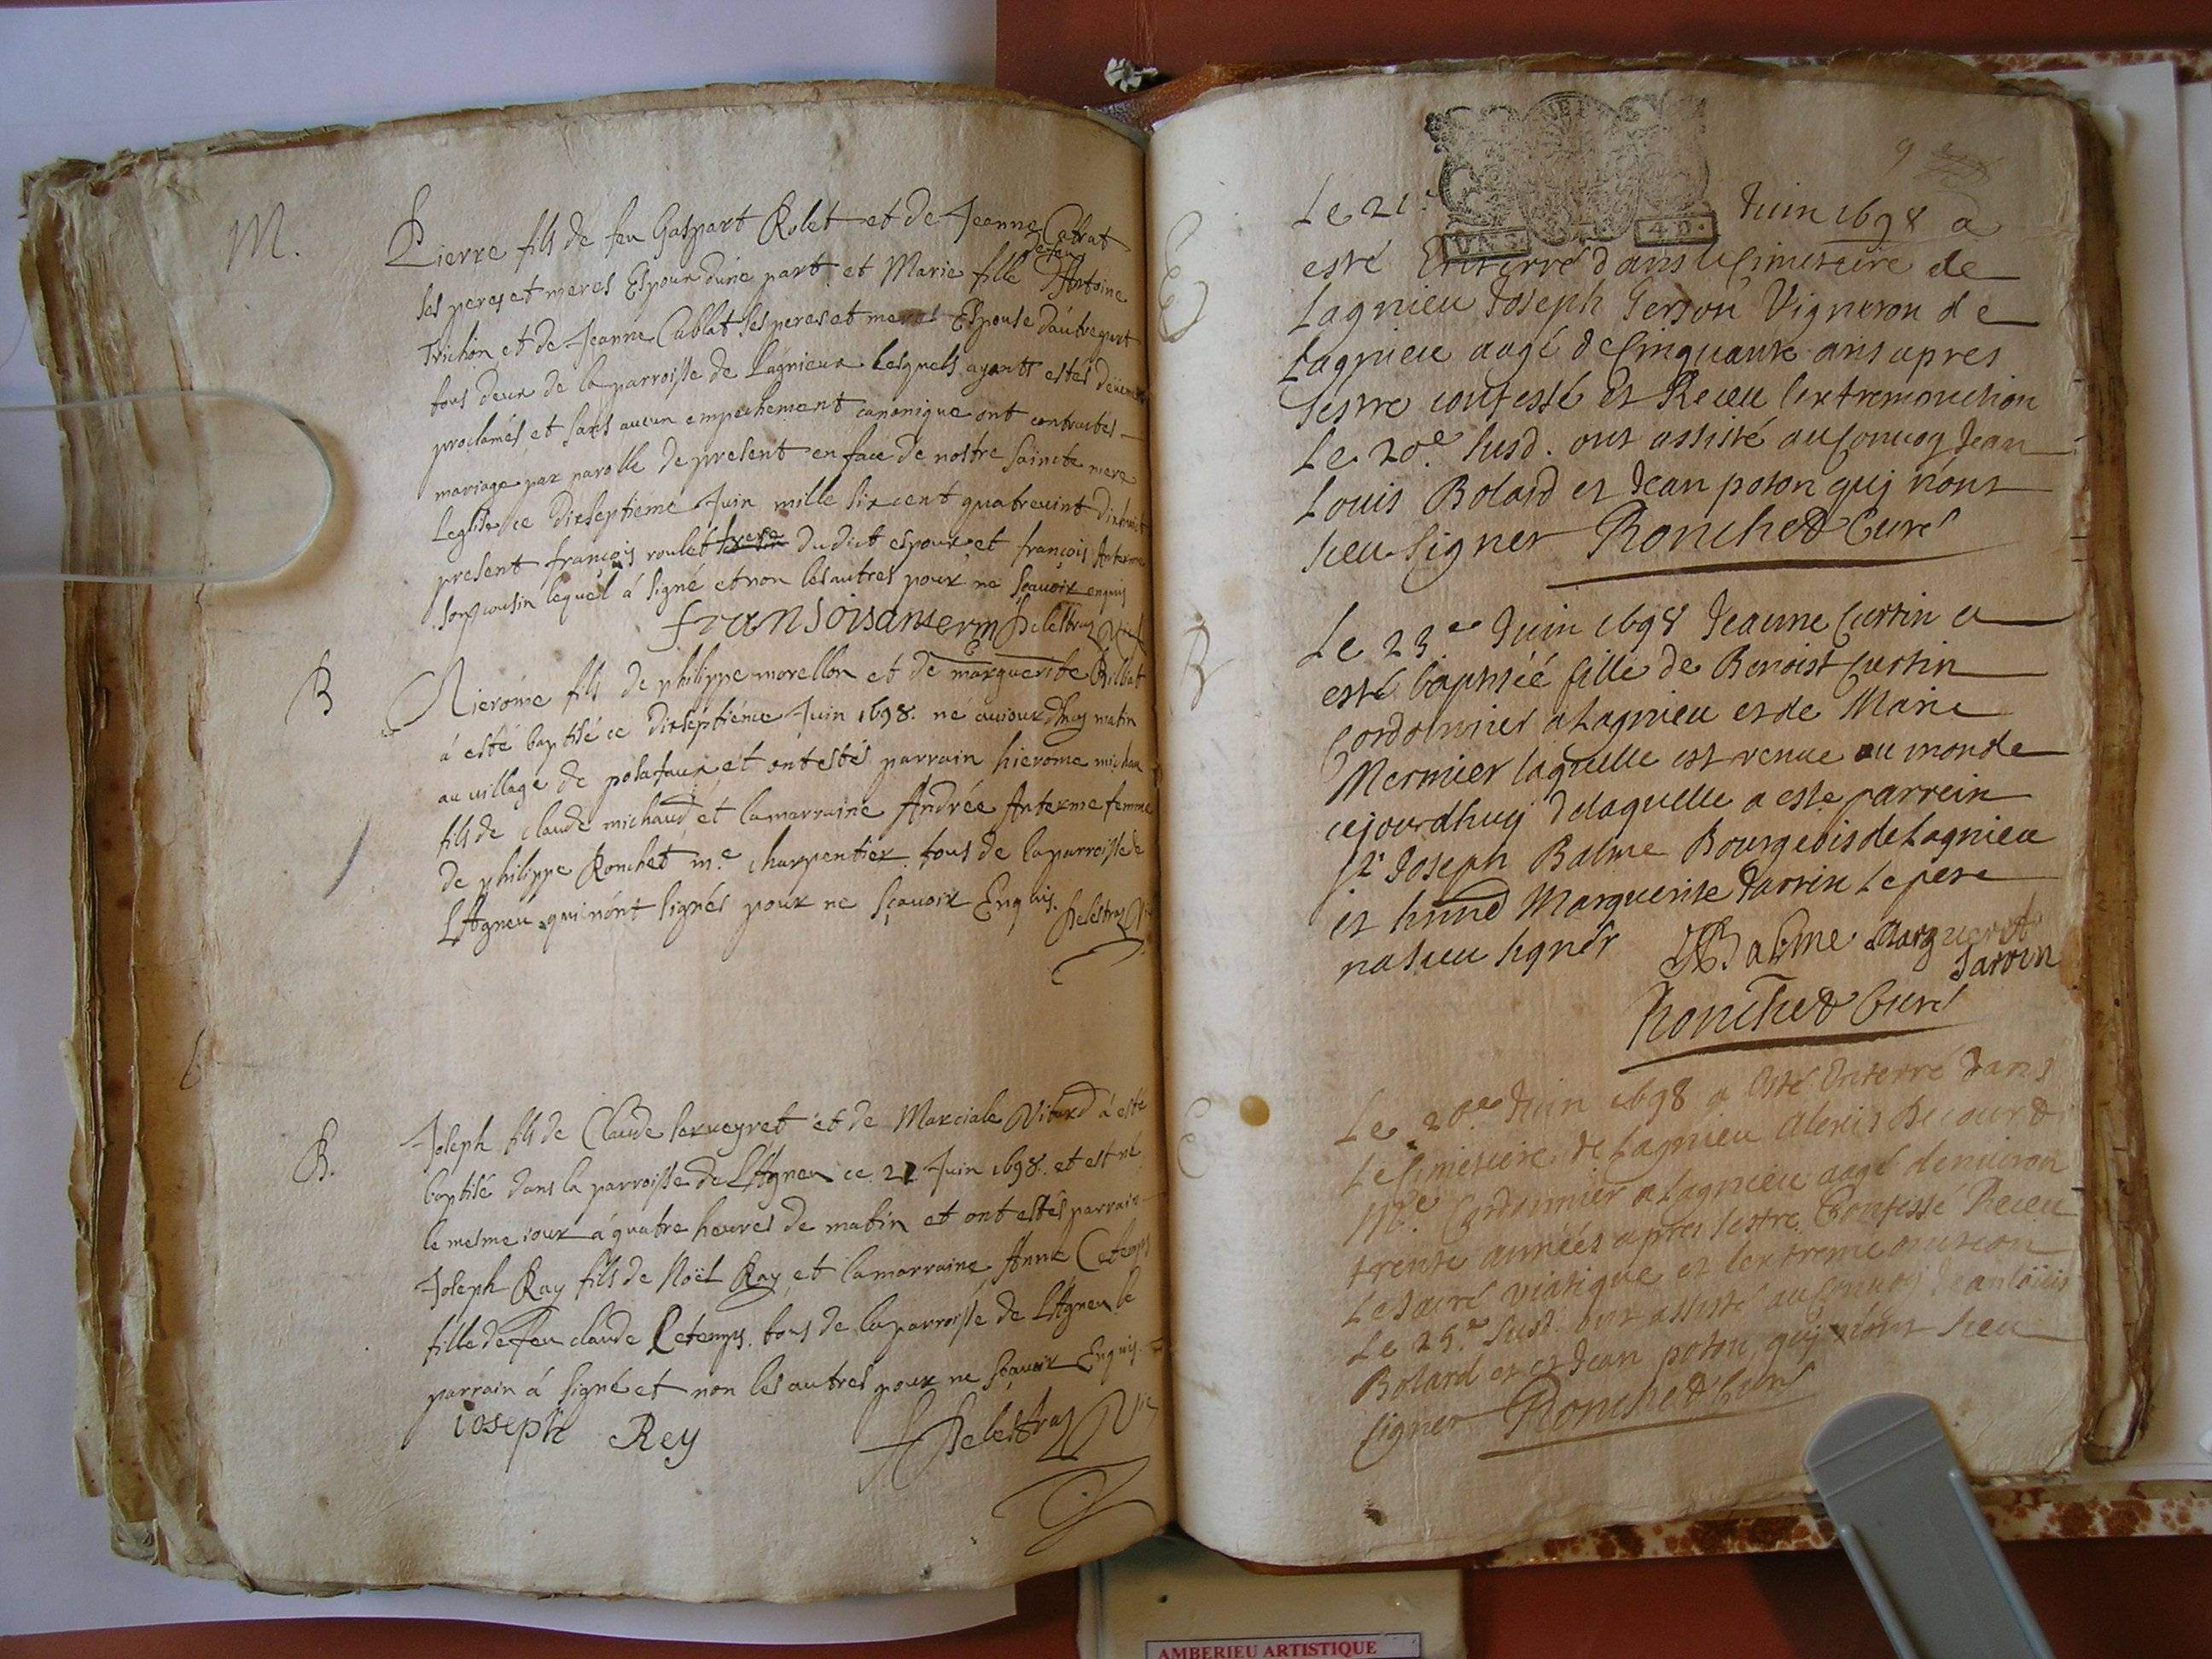 M.
Pierre fils de feu Gaspart Rolet et de Jeanne Cabrat
ses peres et meres Espoux dune part et Marie fille de feu D'Antoine
Trichon et de Jeanne Cablat ses peres et meres Espouse dautre part
tous deux de la parroisse de Lagnieux Lesquels ayants estes deuement
proclamés et sans aucun empechement canonique ont contractes
mariage par parolle de present en face de nostre saincte mere
Leglise ce dixseptieme Juin mille six cent quatrevint dixhuict
present françois roulet frere du dict espoux et françois Anterme
son cousin lequel á signé et non les autres pour ne sçavoir enquis
fransois anterm Delestraz Vic
B
Hierome fils de philippe morellon et de marguerite Billiat
á esté baptisé ce dixseptiéme Juin 1698. né aujourdhuy matin
au village de polafaux et ont estés parrain hierome michau
fils de claude michaud et la marraine Andrée Anterme femme
de philippe Ronchet me charpentier tous de la parroisse de
L'Agneu qui nónt signés pour ne sçavoir Enquis. Delestraz Vic
B.
Joseph fils de Claude serueyret et de Marciale Vitard á esté
baptisé dans la parroisse de L'Agneu ce 21 Juin 1698. et est né
le mesme iour á quatre heures de matin et ont estés parrain
Joseph Ray fils de Noël Ray et la marraine Anne Cetemps
fille de feu claude Cetemps. tous de la parroisse de L'Agneu le
parrain á signé et non les autres pour ne sçavoir Enquis.
ioseph Rey Delestraz Vic
9
Le 21e Juin 1698 a
esté Enterré dans le simetiere de
Lagnieu Joseph Gerson Vigneron de
Lagnieu aagé de Cinquante ans apres
sestre confessé et Receu lextremonction
Le 20e susd. ont assisté au Convoy Jean
Louis Bolard et Jean poton quy nónt
sceu signer Ronchet Curé
B
Le 23e Juin 1698 Jeanne Curtin a
esté baptisée fille de Benoist Curtin
Cordonnier a Lagnieu et de Marie
Mermier laquelle est venue au monde
cejourdhuy delaquelle a este parrein
sr Joseph Balme Bourgeois de Lagnieu
et hnnd Marguerite Jarrin Le pere
na sceu signér JBalme Marguerit
Jarrin
Ronchet Curé
Le 26e Juin 1698 a Esté Enterré dans
Le simetiere de Lagnieu Alexis Decour
Me Cordonnier a Lagnieu aagé denuiron
trente années apres sestre Confessé Receu
Le Sacré viatique et lextreme onction
Le 25e susd. ont assisté au Convoi Jean Loüis
Bolard et et Jean poton quy nónt sceu
signer Ronchet Curé
AMBERIEU ARTISTIQUE